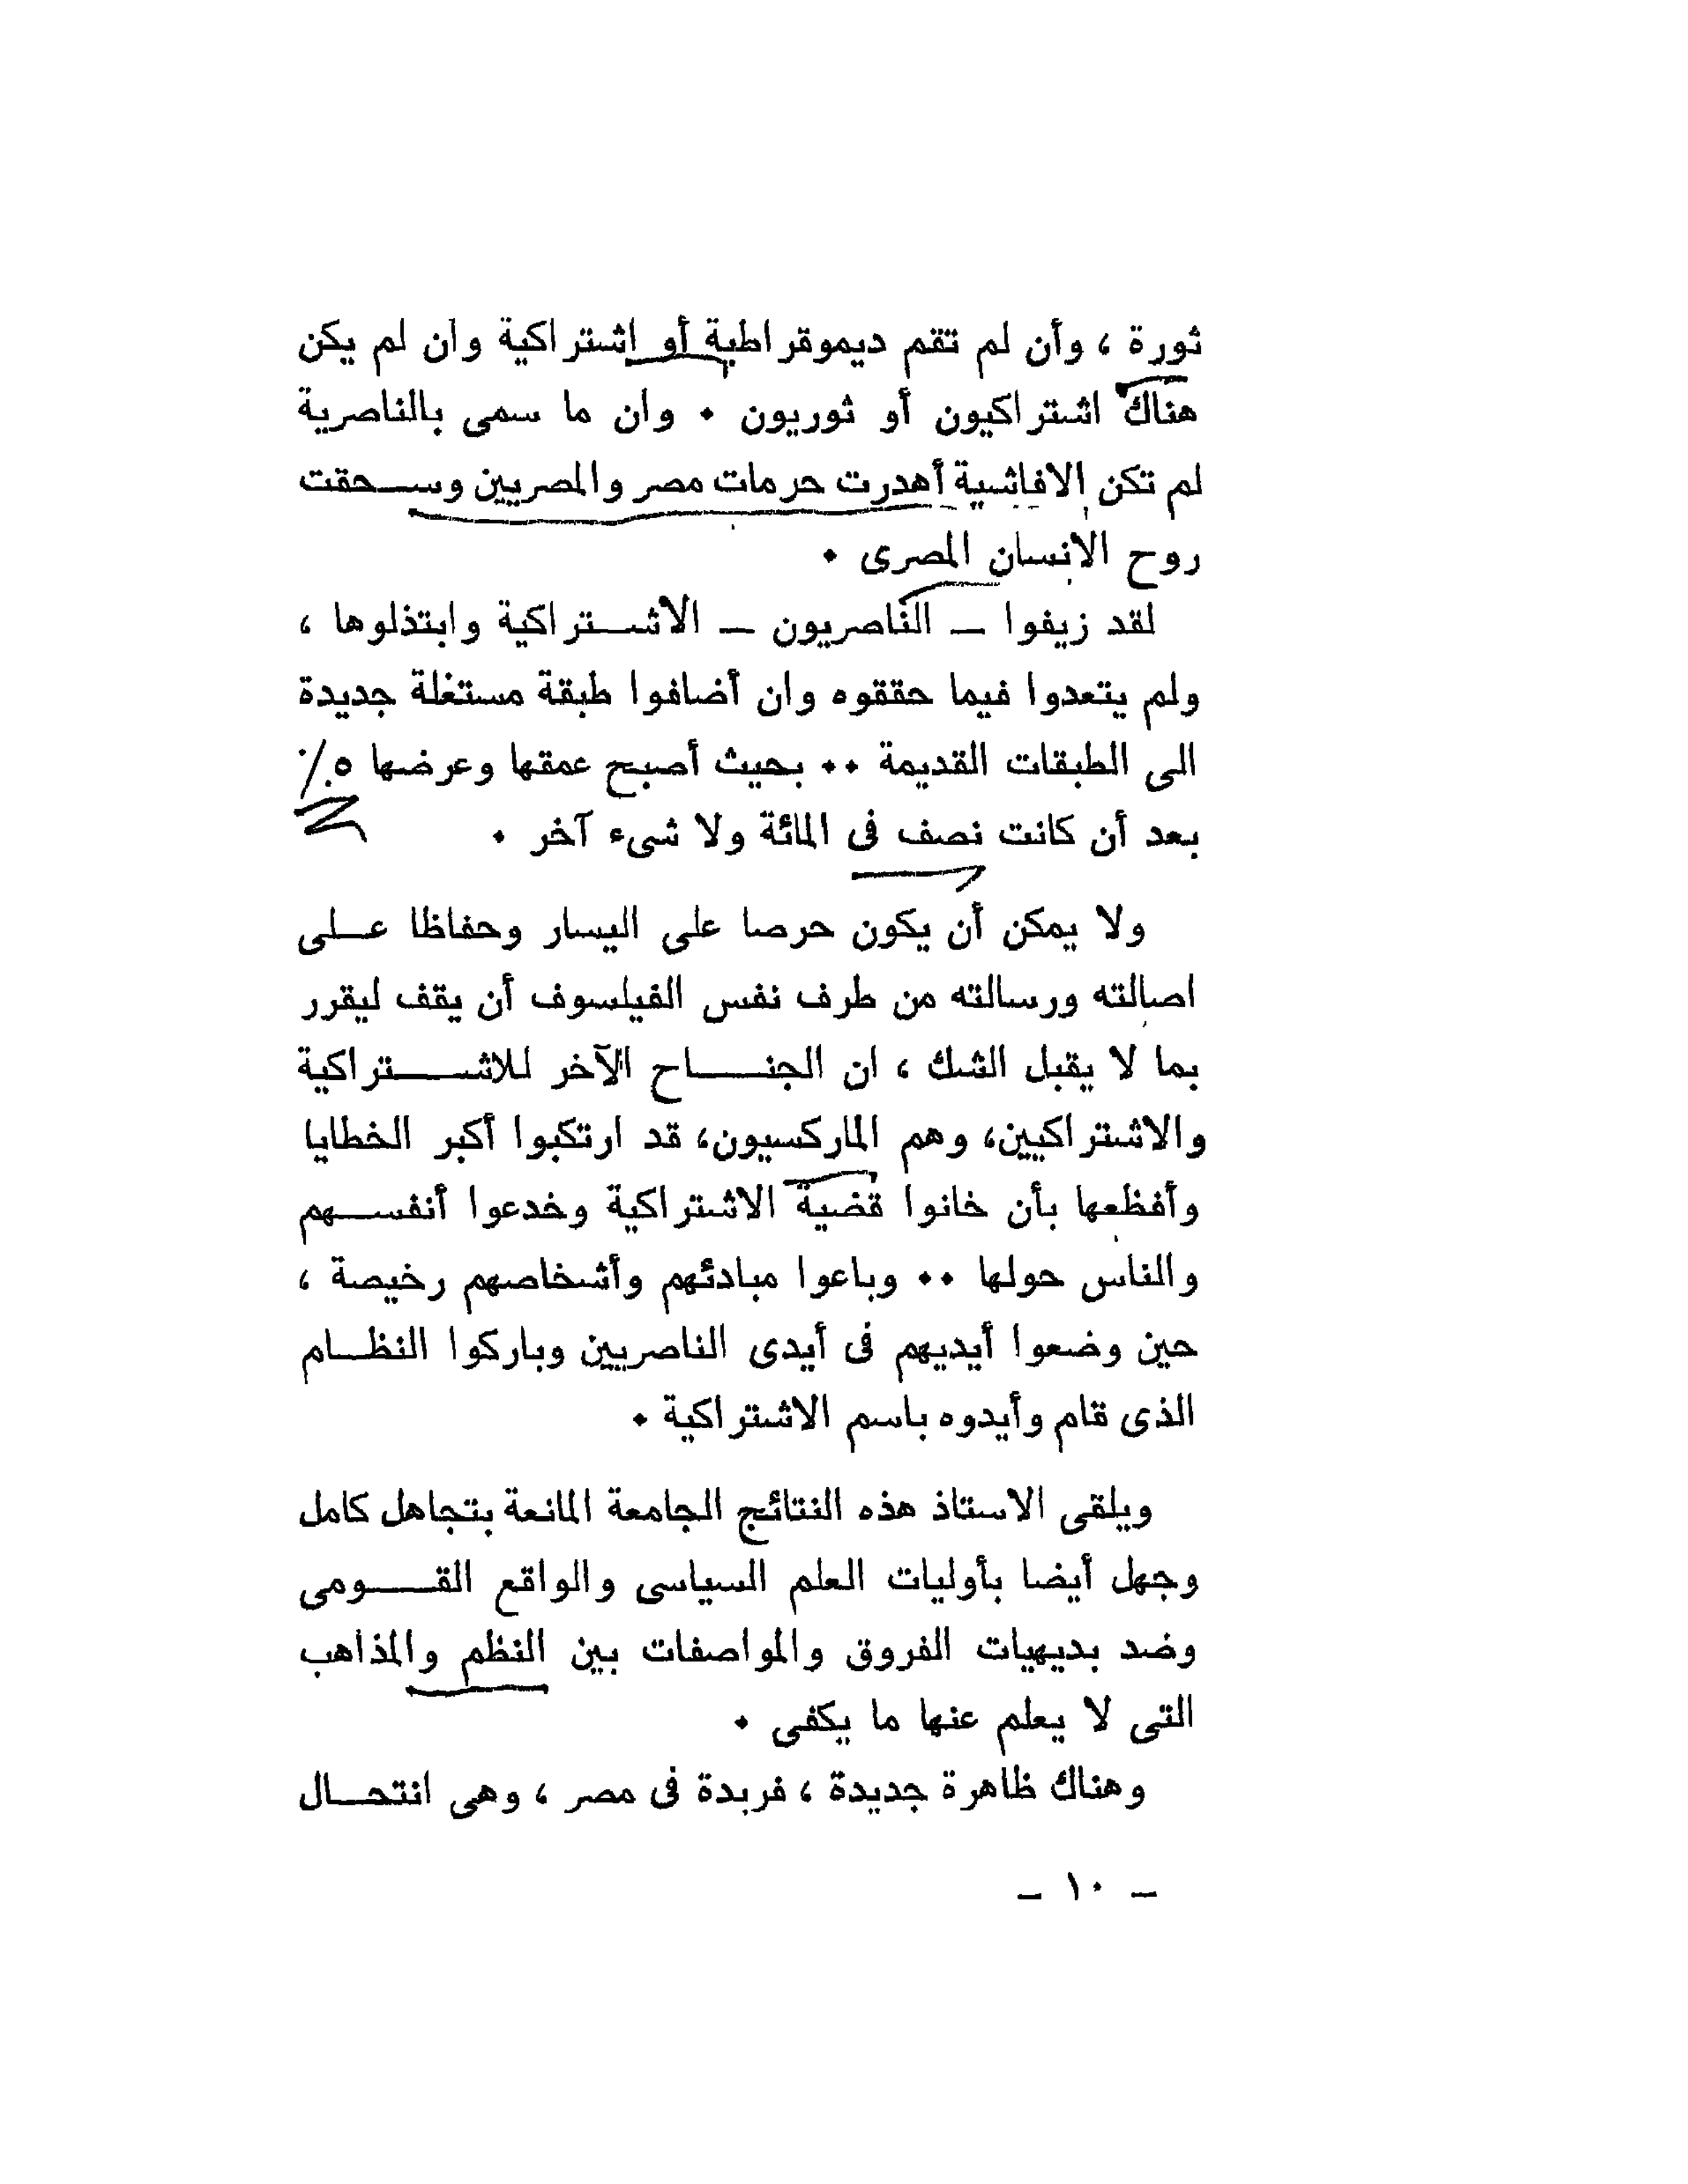 ثورة ، وأن لم تقم ديموقراطية أو اشتراكية وان لم يكن
هناك اشتراكيون أو ثوريون • وان ما سمى بالناصرية
لم تكن الافاشية أهدرت حرمات مصر والمصريين وسحقت
روح الانسان المصرى •
لقد زيفوا – الناصريون – الاشتراكية وابتذلوها ،
ولم يتعدوا فيما حققوه وان أضافوا طبقة مستغلة جديدة
الى الطبقات القديمة •• بحيث أصبح عمقها وعرضها ٥٪
بعد أن كانت نصف فى المائة ولا شىء آخر •
ولا يمكن أن يكون حرصا على اليسار وحفاظا على
اصالته ورسالته من طرف نفس الفيلسوف أن يقف ليقرر
بما لا يقبل الشك ، ان الجناح الآخر للاشتراكية
والاشتراكيين، وهم الماركسيون، قد ارتكبوا أكبر الخطايا
وأفظعها بأن خانوا قضية الاشتراكية وخدعوا أنفسهم
والناس حولها •• وباعوا مبادئهم وأشخاصهم رخيصة ،
حين وضعوا أيديهم فى أيدى الناصريين وباركوا النظام
الذى قام وأيدوه باسم الاشتراكية •
ويلقى الاستاذ هذه النتائج الجامعة المانعة بتجاهل كامل
وجهل أيضا بأوليات العلم السياسى والواقع القومى
وضد بديهيات الفروق والمواصفات بين النظم والمذاهب
التى لا يعلم عنها ما يكفى •
وهناك ظاهرة جديدة ، فريدة فى مصر ، وهى انتحال
– ١٠ –